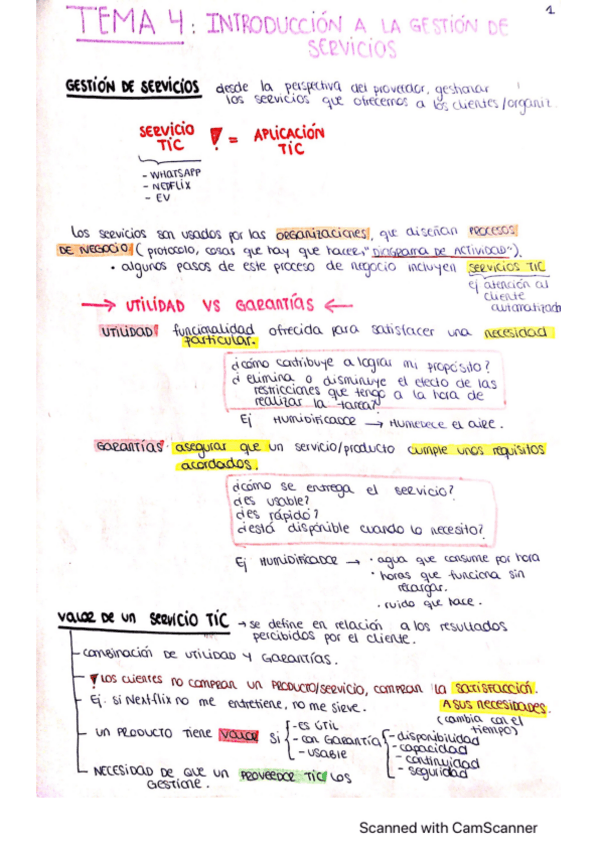 1
TEMA 4: INTRODUCCIÓN A LA GESTIÓN DE
SERVICIOS
GESTIÓN DE SERVICIOS desde la perspectiva del proveedor, gestionar
los servicios que ofrecemos a los clientes/organiz.
SERVICIO TIC != APLICACIÓN TIC
- WHATSAPP
- NETFLIX
- EV
Los servicios son usados por las ORGANIZACIONES, que diseñan PROCESOS
DE NEGOCIO (protocolo, cosas que hay que hacer, "DIAGRAMA DE ACTIVIDAD").
• algunos pasos de este proceso de negocio incluyen SERVICIOS TIC
ej atención al
cliente
automatizada
→ UTILIDAD VS GARANTÍAS ←
UTILIDAD: funcionalidad ofrecida para satisfacer una necesidad
particular.
¿cómo contribuye a lograr mi propósito?
¿elimina o disminuye el efecto de las
restricciones que tengo a la hora de
realizar la tarea?
Ej HUMIDIFICADOR → HUMEDECE EL AIRE.
GARANTÍAS: asegurar que un servicio/producto cumple unos requisitos
acordados.
¿cómo se entrega el servicio?
¿es usable?
¿es rápido?
¿está disponible cuando lo necesito?
Ej HUMIDIFICADOR → • agua que consume por hora
• horas que funciona sin
recargar.
• ruido que hace.
VALOR DE UN SERVICIO TIC → se define en relación a los resultados
percibidos por el cliente.
- COMBINACIÓN DE UTILIDAD Y GARANTÍAS.
- ! LOS CLIENTES NO COMPRAN UN PRODUCTO/SERVICIO, COMPRAN LA SATISFACCIÓN
A SUS NECESIDADES.
(cambia con el
tiempo)
- Ej. si Nextflix no me entretiene, no me sirve.
- UN PRODUCTO TIENE VALOR SI
- ES ÚTIL
- CON GARANTÍA
- USABLE
- disponibilidad
- capacidad
- continuidad
- seguridad
- NECESIDAD DE QUE UN PROVEEDOR TIC LOS
GESTIONE.
Scanned with CamScanner